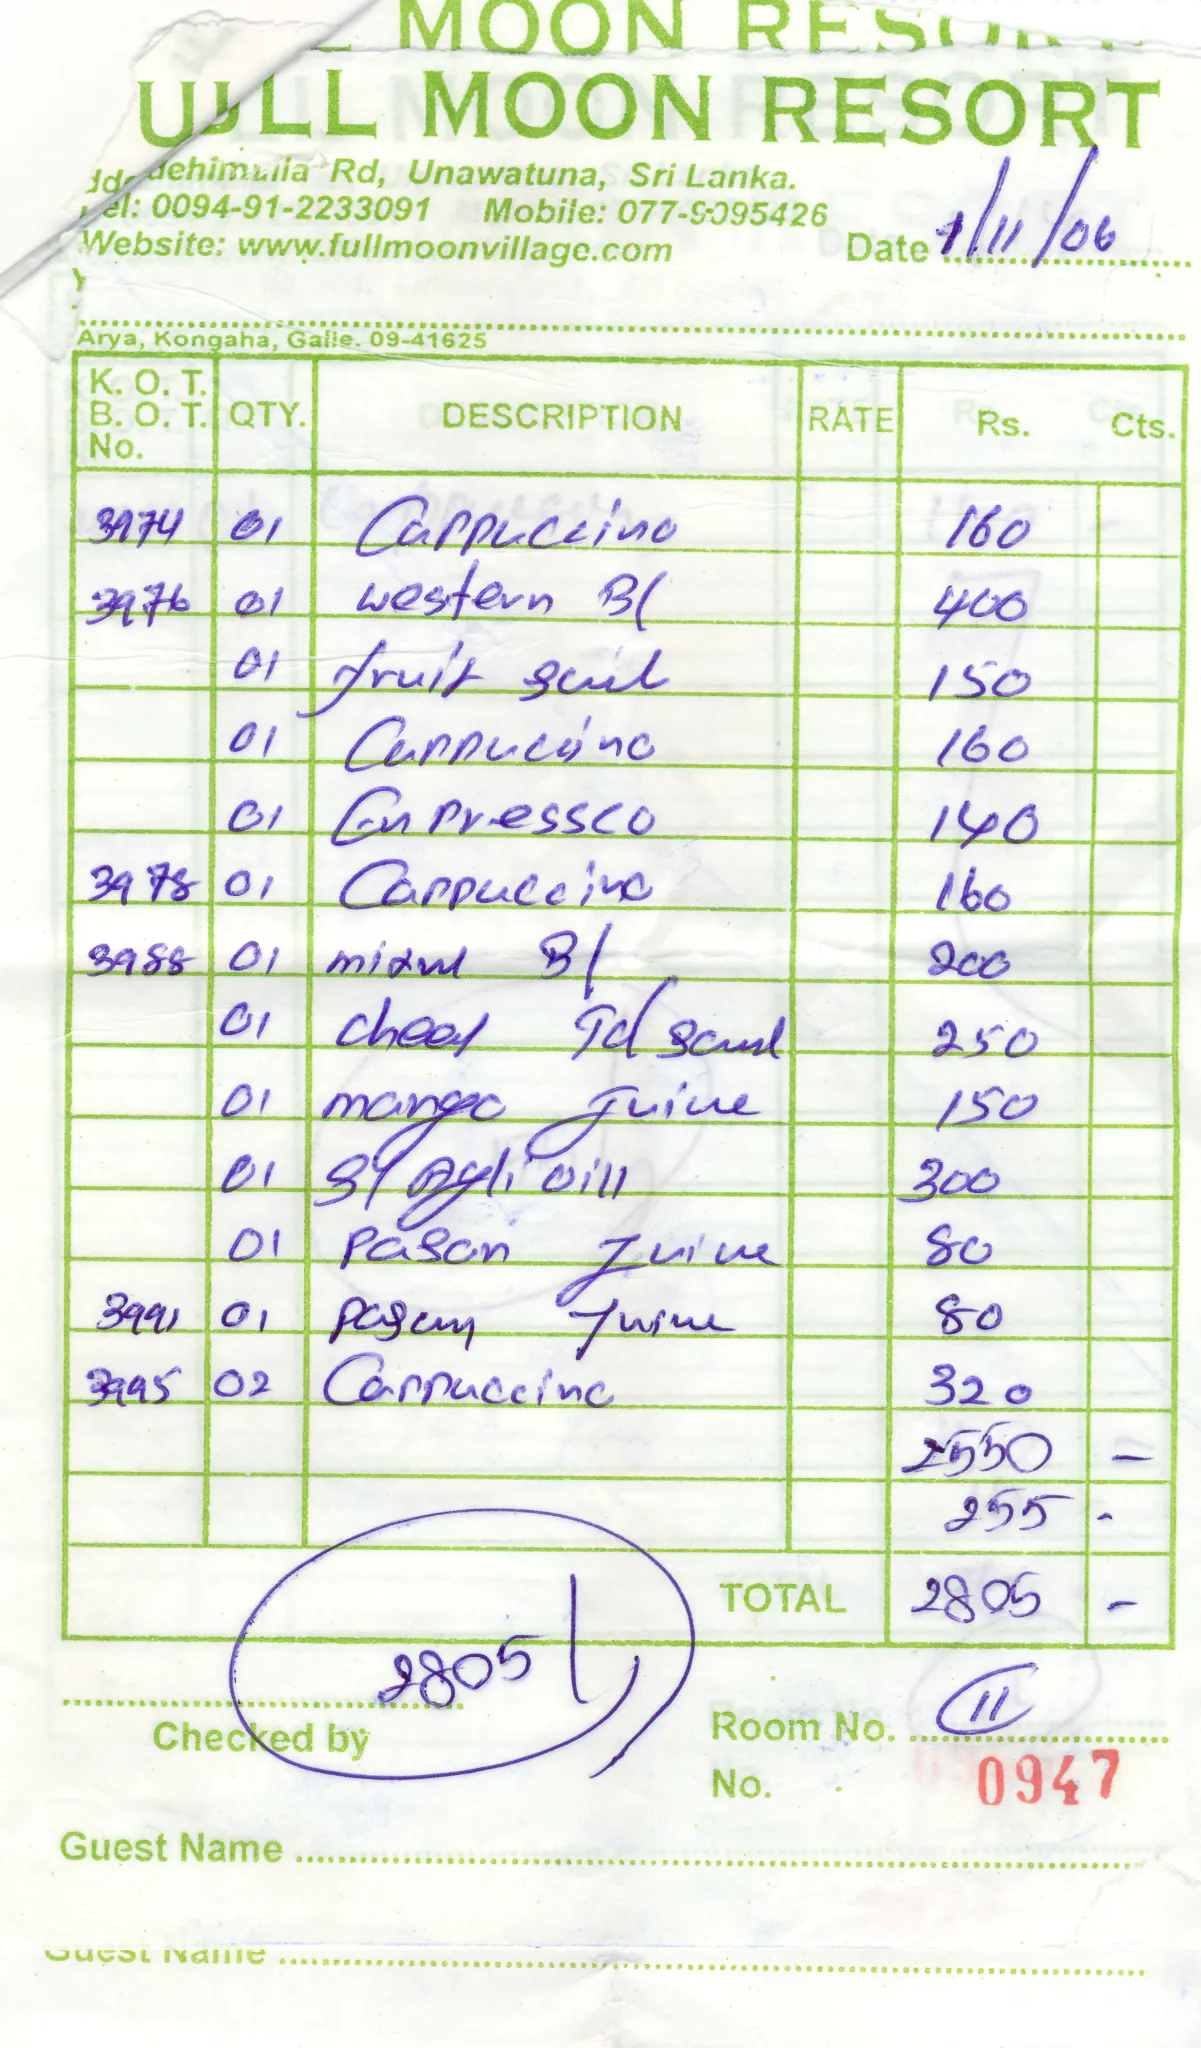 L MOON RESORT
ULL MOON RESORT
dehimulla Rd, Unawatuna, Sri Lanka.
Tel: 0094-91-2233091 Mobile: 077-9095426
Website: www.fullmoonvillage.com
Date 1/11/06
Arya, Kongaha, Galle. 09-41625
K. O. T. B. O. T. No. QTY. DESCRIPTION RATE Rs. Cts.
3974 01 Cappuccino 160
3976 01 western B/ 400
01 fruit 150
01 Cappuccino 160
01 Enpressco 140
3978 01 Cappuccino 160
3988 01 B/ 200
01 Td 250
01 mango Juice 150
01 300
01 Pason Juice 80
3991 01 Pason Juice 80
3995 02 Cappuccino 320
2550 -
255 -
TOTAL 2805 -
2805
Checked by
Room No. 11
No. 0947
Guest Name
Guest Name